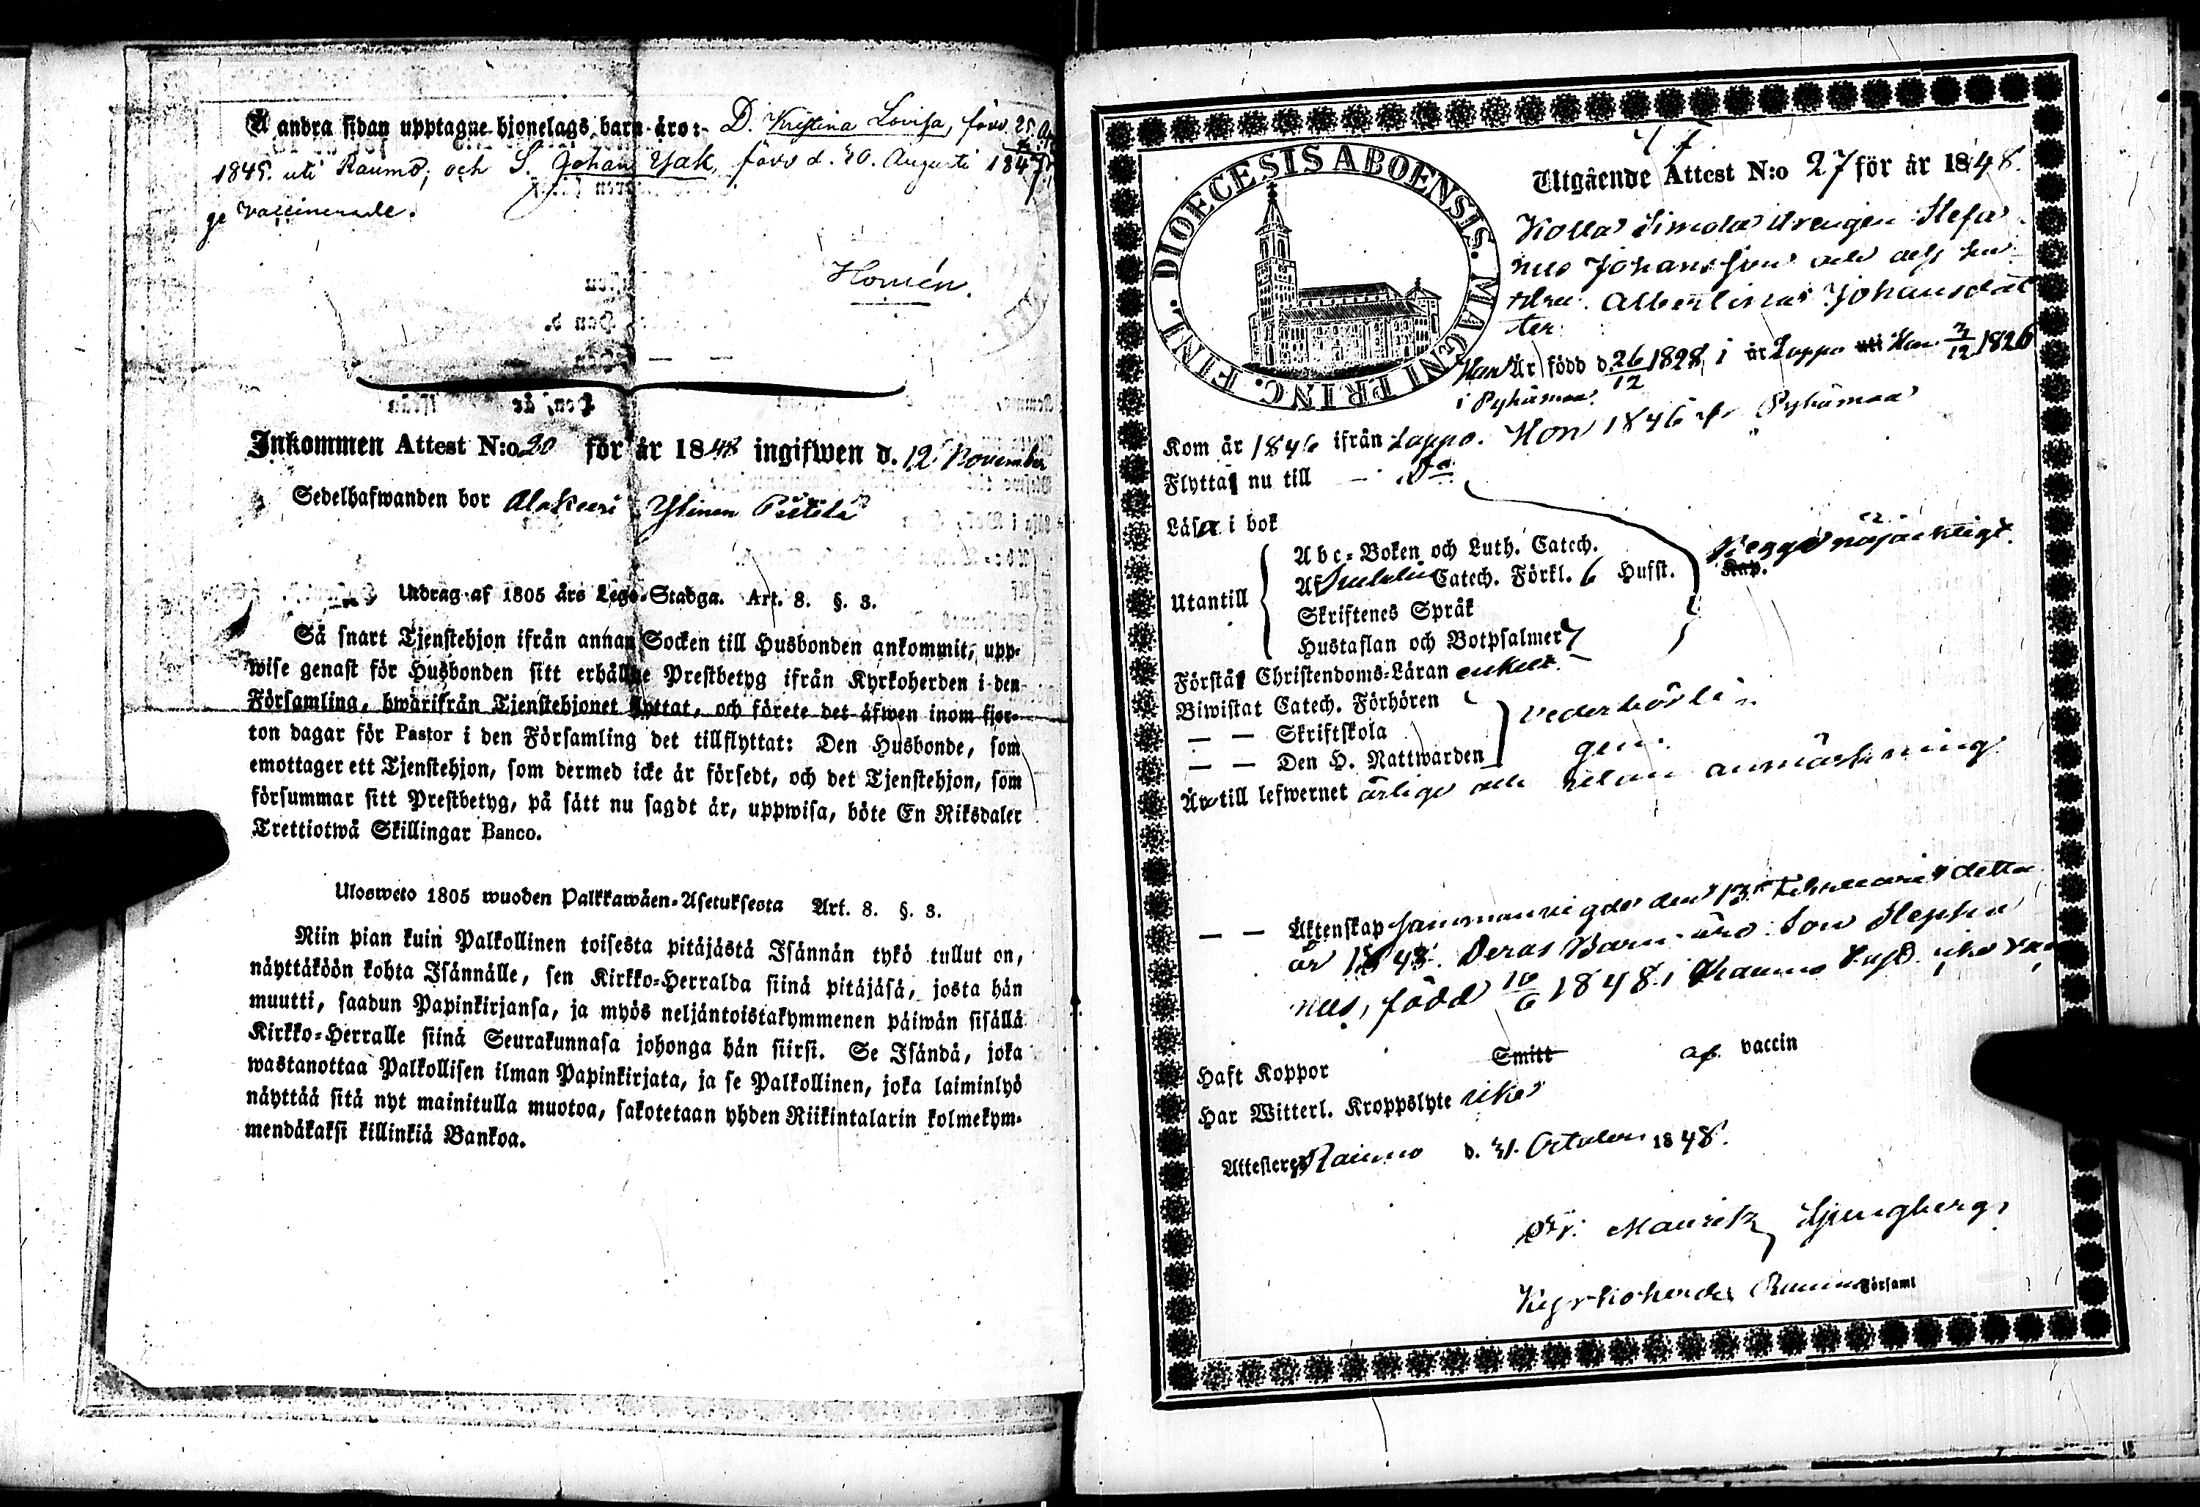 Å andra sidan upptagne hjonelags barn äro: D. Kristina Lovisa, född 25
1845. uti Raumo, och S. Johan Isak, född d. 20. Augusti 1847
ge vaccinerade.
Homén.
Inkommen Attest N:o 20 för år 1848 ingifwen d. 12 November
Sedelhafwanden bor Alakeeri Ylinen Pietilä
Utdrag af 1805 års Lego-Stadga. Art. 8. §. 3.
Så snart Tjenstehjon ifrån annan Socken till Husbonden ankommit, upp-
wise genast för Husbonden sitt erhållne Prestbetyg ifrån Kyrkoherden i den
Församling, hwarifrån Tjenstehjonet flyttat, och förete det äfwen inom fjor-
ton dagar för Pastor i den Församling det tillflyttat: Den Husbonde, som
emottager ett Tjenstehjon, som dermed icke är försedt, och det Tjenstehjon, som
försummar sitt Prestbetyg, på sätt nu sagdt är, uppwisa, böte En Riksdaler
Trettiotwå Skillingar Banco.
Ulosweto 1805 wuoden Palkkawäen-Asetuksesta Art. 8. §. 3.
Niin pian kuin Palkollinen toisesta pitäjästä Isännän tykö tullut on,
näyttäköön kohta Isännälle, sen Kirkko-Herralda siinä pitäjäsä, josta hän
muutti, saadun Papinkirjansa, ja myös neljäntoistakymmenen päiwän sisällä
Kirkko-Herralle siinä Seurakunnasa johonga hän siirsi. Se Isändä, joka
wastanottaa Palkollisen ilman Papinkirjata, ja se Palkollinen, joka laiminlyö
näyttää sitä nyt mainitulla muotoa, sakotetaan yhden Riikintalarin kolmekym-
mendäkaksi killinkiä Bankoa.
DIOECESIS ABOENSIS. MAGNI PRINC. FINL.
Utgående Attest N:o 27 för år 1848.
Kolla Simola drengen Stefa
nus Johansson och dess hu
stru Albertina Johansdot
ter
Han Är född d. 26/12 1828 i Lappo Hon 3/12 1826
i Pyhämaa
Kom år 1846 ifrån Lappo. Hon 1846 fr Pyhämaa
Flytta nu till D:o
Läsa i bok
Abc-Boken och Luth. Catech.
Af Catech. Förkl. 6 Hufst. Kap.
Begge nöjaktligt.
Utantill
Skriftenes Språk
Hustaflan och Botpsalmer 7
Förstå Christendoms-Läran enkelt.
Biwistat Catech. Förhören
— — Skriftskola
— — Den H. Nattwarden
vederbörli
gen.
Äro till lefwernet ärlige och utan anmärkning
— — Äktenskap sammanvigde den 13 Februarii detta
år 1848. Deras Barn äro: Son Stepha
nus, född 16/6 1848 i Raumo
Haft Koppor Smitt af vaccin
Har Witterl. Kroppslyte icke
Attesteras Raumo d. 31. October 1848.
Fr: Mauritz Ljungberg
Kyrkoherde i Raumo Församl